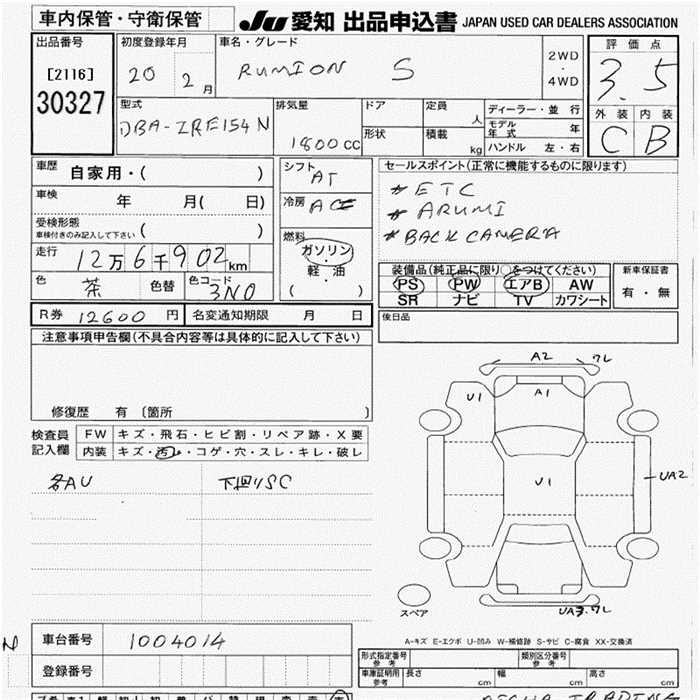 車内保管・守衛保管
JU 愛知 出品申込書 JAPAN USED CAR DEALERS ASSOCIATION
出品番号
[2116]
30327
初度登録年月
20 2月
車名・グレード
RUMION S
2WD
・
4WD
評価点
3.5
外装 内装
C B
型式
DBA-ZRE154N
排気量
1800CC
ドア
形状
定員 人
積載 kg
ディーラー・並行
モデル年式 年
ハンドル 左・右
車歴 自家用・( )
車検 年 月( 日)
受検形態
車検付きのみ記入して下さい ( )
走行
12万6千902km
色 茶 色替 色コード 3N0
シフト
AT
冷房 AC
燃料
ガソリン
・
軽・油
( )
セールスポイント(正常に機能するものに限ります)
*ETC
*ARUMI
*BACK CAMERA
装備品(純正品に限り○をつけてください)
PS PW エアB AW
SR ナビ TV カワシート
新車保証書
有・無
後日品
R券 12600 円 名変通知期限 月 日
注意事項申告欄(不具合内容等は具体的に記入して下さい)
修復歴 有 〔箇所 〕
検査員
記入欄
FW キズ・飛石・ヒビ割・リペア跡・X要
内装 キズ・汚れ・コゲ・穴・スレ・キレ・破レ
各AU 下回りSC
A2 ワレ
U1 A1
U1
UA2
UA3.ワレ
スペア
A-キズ E-エクボ U-凹み W-補修跡 S-サビ C-腐食 XX-交換済
N
車台番号 1004014
登録番号
形式指定番号
参考
類別区分番号
参考
車庫証明用
参考
長さ cm 幅 cm 高さ cm